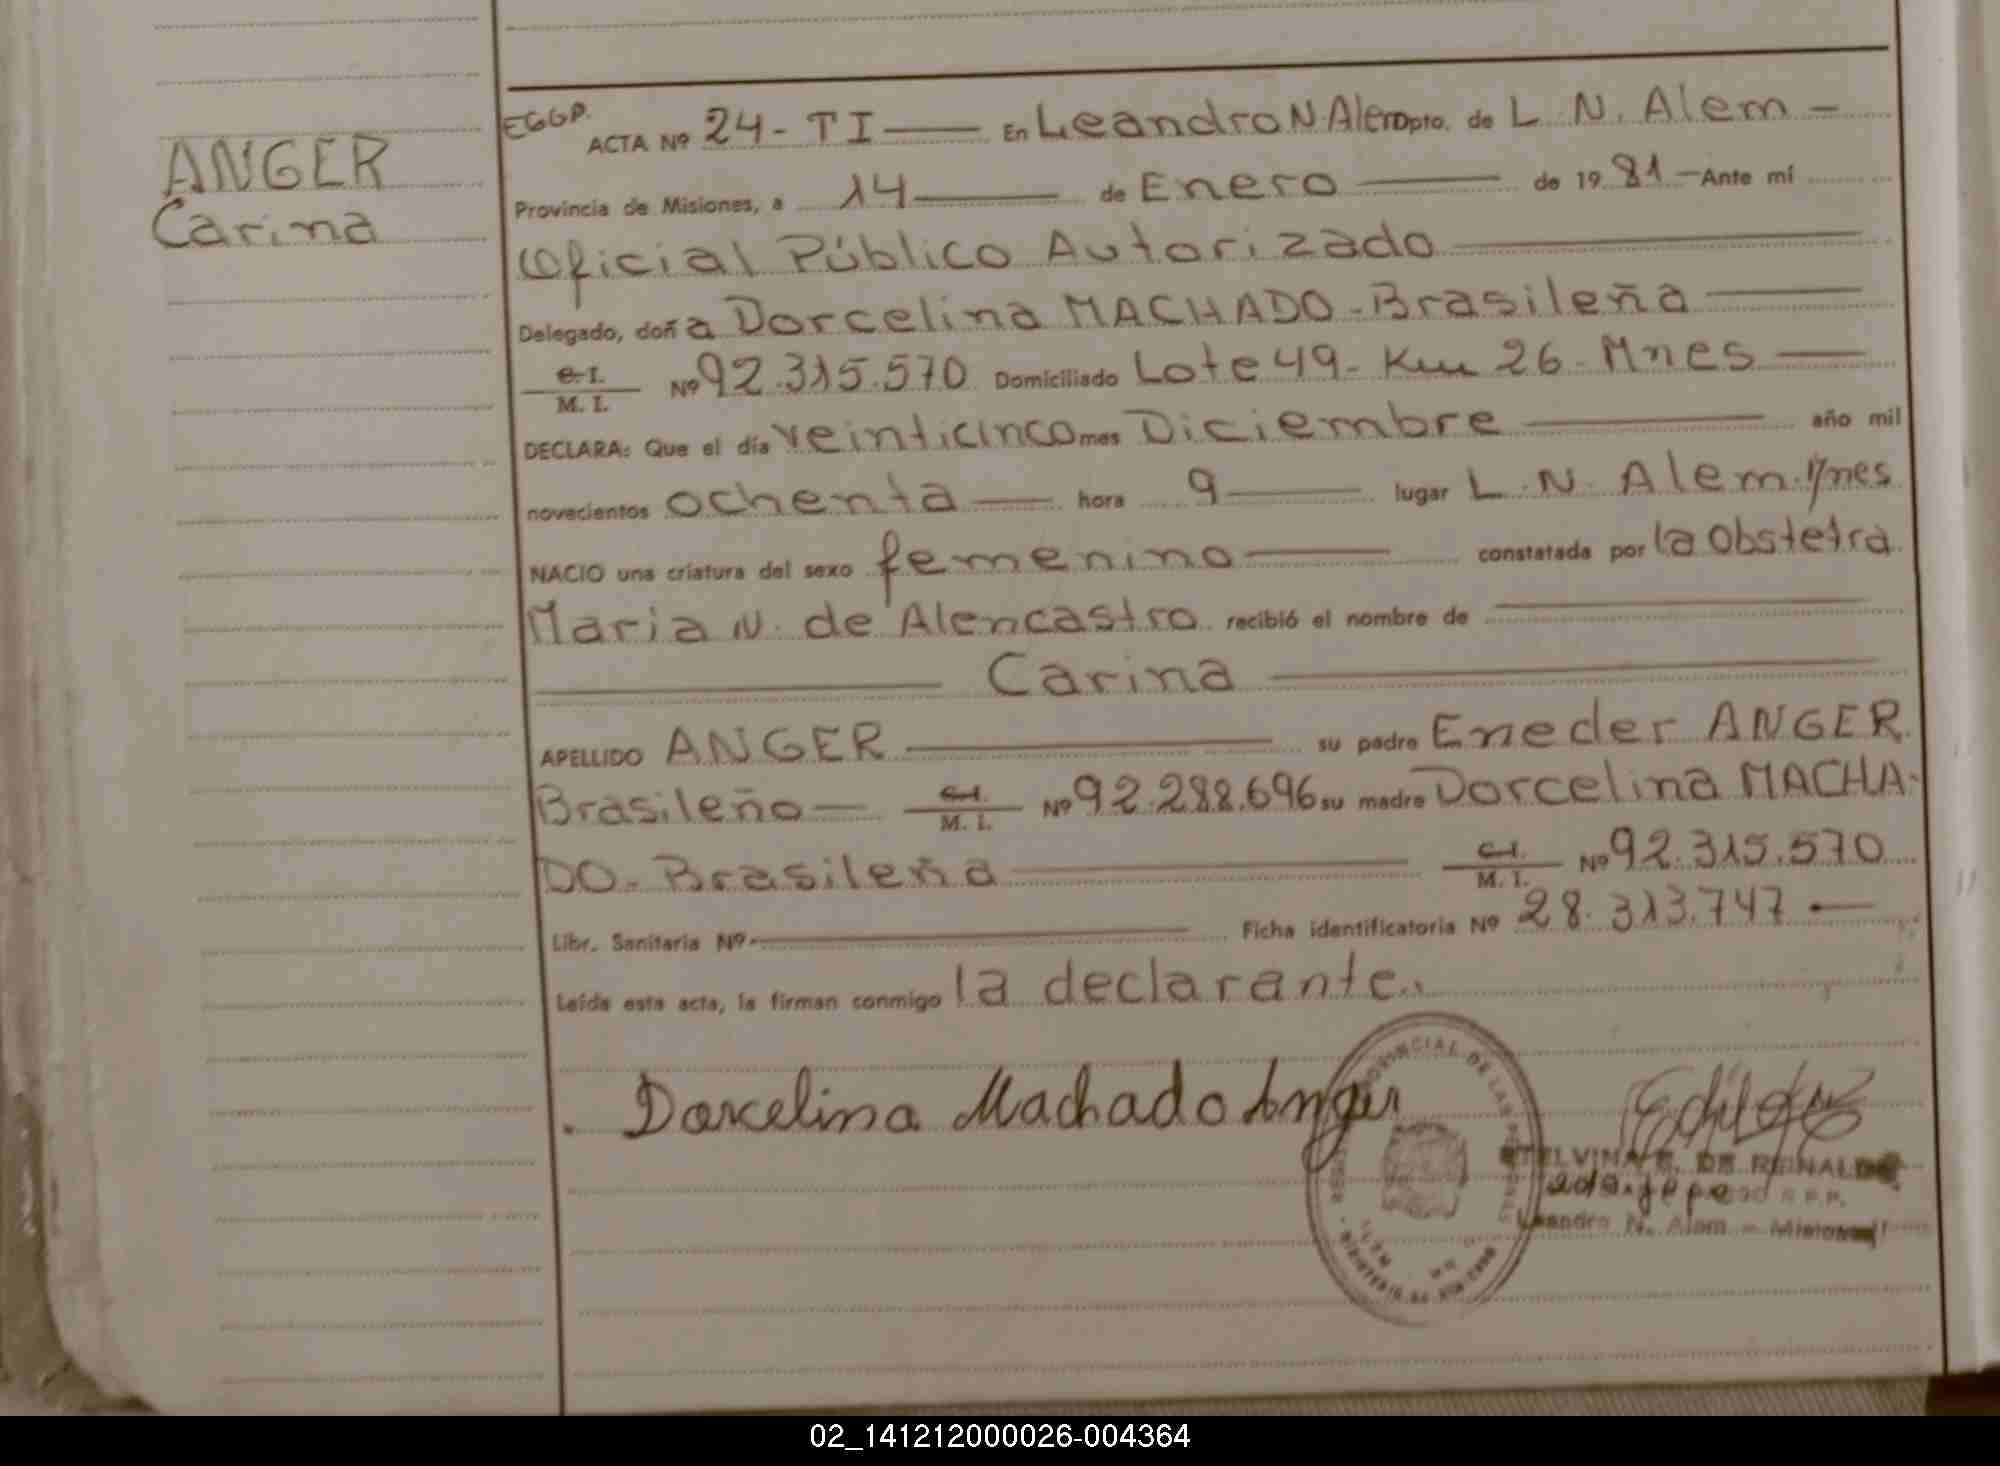 ANGER
Carina
EGGP.
ACTA Nº 24 - TI — En Leandro N Alem Dpto. de L. N. Alem —
Provincia de Misiones, a 14 — de Enero — de 19 81 — Ante mí
Oficial Público Autorizado
Delegado, doña Dorcelina MACHADO - Brasileña
C. I.
M. I.
Nº 92.315.570 Domiciliado Lote 49 - Km 26 - Mnes
DECLARA: Que el día veinticinco mes Diciembre — año mil
novecientos ochenta — hora 9 — lugar L. N. Alem. Mnes
NACIO una criatura del sexo femenino — constatada por la obstetra
Maria N. de Alencastro recibió el nombre de
Carina
APELLIDO ANGER — su padre Eneder ANGER.
Brasileño — C. I. Nº 92.288.696 su madre Dorcelina MACHA-
M. I.
DO - Brasileña — C. I. Nº 92.315.570
M. I.
Libr. Sanitaria Nº — Ficha identificatoria Nº 28.313.747 —
Leída esta acta, la firman conmigo la declarante.
Dorcelina Machado Anger
PROVINCIAL DE LAS
DE REINALDO
Leandro N. Alem - Misiones
02_141212000026-004364